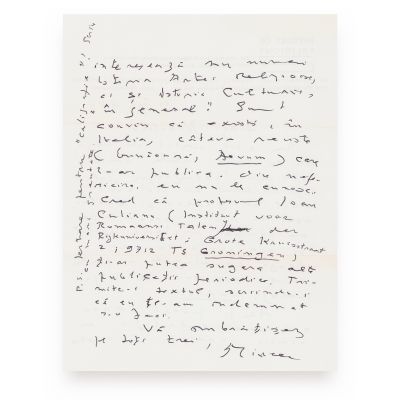 interesează nu numai
Istoria Artei religioase,
ci și Istoria Culturii,
„în general”. Sunt
convins că există, în
Italia, câteva reviste
(bunăoară, Aevum) care
l-ar publica. Din nefericire, eu nu le cunosc.
Cred că profesorul Ioan
Culianu (Instituut voor
Romaanse Talen der
Rijksuniversiteit, Grote Kruisstraat
2, 9712 TS Groningen)
ți-ar putea sugera alte
publicații periodice. Trimite-i textul, scriindu-i
că eu te-am îndemnat
s-o faci.
Vă îmbrățișez
pe toți trei,
Mircea
P.S. Iertare pentru "caligrafie"!